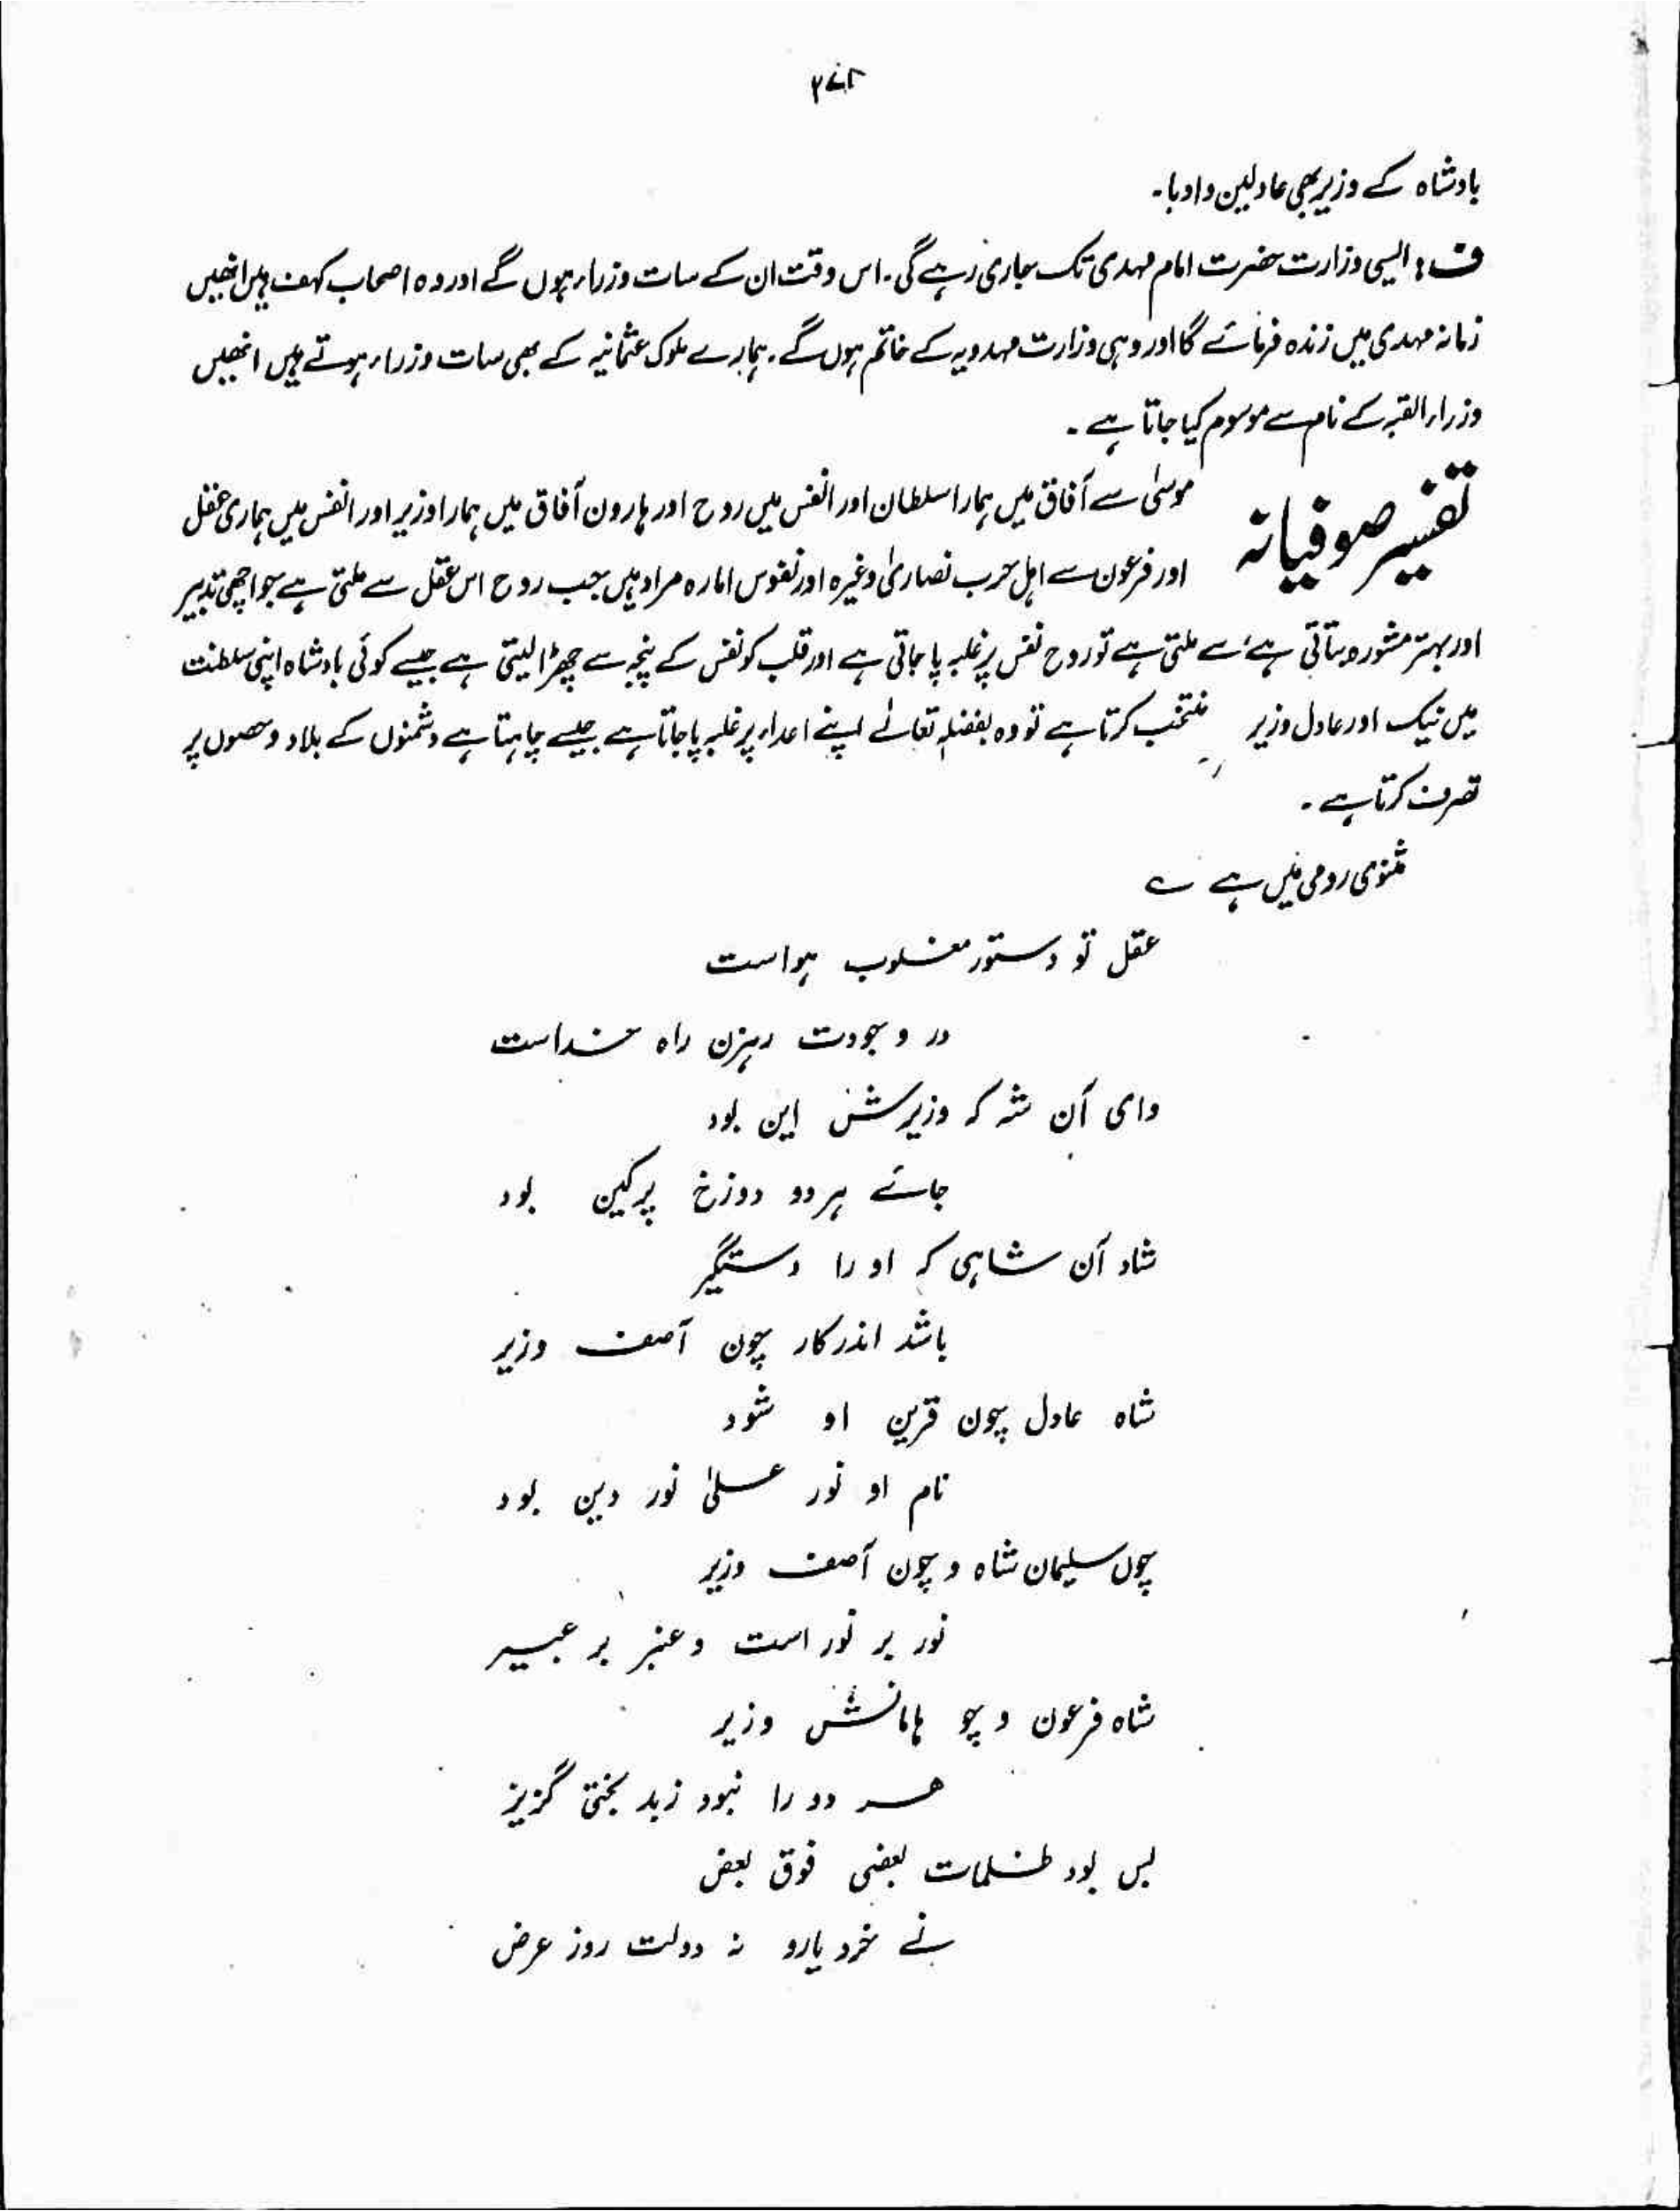 ۲۷۲
بادشاہ کے وزیر بھی عادلین و ادبا۔
ف: ایسی وزارت حضرت امام مہدی تک جاری رہے گی۔ اس وقت ان کے سات وزراء ہوں گے اور وہ اصحاب کہف ہیں انھیں
زمانہ مہدی میں زندہ فرمائے گا اور وہی وزارت مہدویہ کے خاتم ہوں گے۔ ہمارے ملوک عثمانیہ کے بھی سات وزراء ہوتے ہیں انھیں
وزراء القبہ کے نام سے موسوم کیا جاتا ہے۔
تفسیر صوفیانہ موسیٰ سے آفاق میں ہمارا سلطان اور انفس میں روح اور ہارون آفاق میں ہمارا وزیر اور انفس میں ہماری عقل
اور فرعون سے اہل حرب نصاریٰ وغیرہ اور نفوس امارہ مراد ہیں جب روح اس عقل سے ملتی ہے جو اچھی تدبیر
اور بہتر مشورہ بتاتی ہے سے ملتی ہے تو روح نفس پر غلبہ پا جاتی ہے اور قلب کو نفس کے پنجہ سے چھڑا لیتی ہے جیسے کوئی بادشاہ اپنی سلطنت
میں نیک اور عادل وزیر منتخب کرتا ہے تو وہ بفضلہٖ تعالےٰ اپنے اعداء پر غلبہ پا جاتا ہے جیسے چاہتا ہے دشمنوں کے بلاد و حصوں پر
تصرف کرتا ہے۔
مثنوی رومی میں ہے ؎
عقل تو دستور مغلوب ہواست
در وجودت رہزن راہ خداست
وای آن شہ کہ وزیرش این بود
جائے ہر دو دوزخ پرکین بود
شاد آن شاہی کہ او را دستگیر
باشد اندر کار چون آصف وزیر
شاہ عادل چون قرین او شود
نام او نور علیٰ نور دین بود
چوں سلیمان شاہ و چون آصف وزیر
نور بر نور است و عنبر بر عبیر
شاہ فرعون و چو ہامانش وزیر
ہر دو را نبود زبد بختی گزیز
بس بود ظلمات بعضی فوق بعض
نے خرد یارو نہ دولت روز عرض